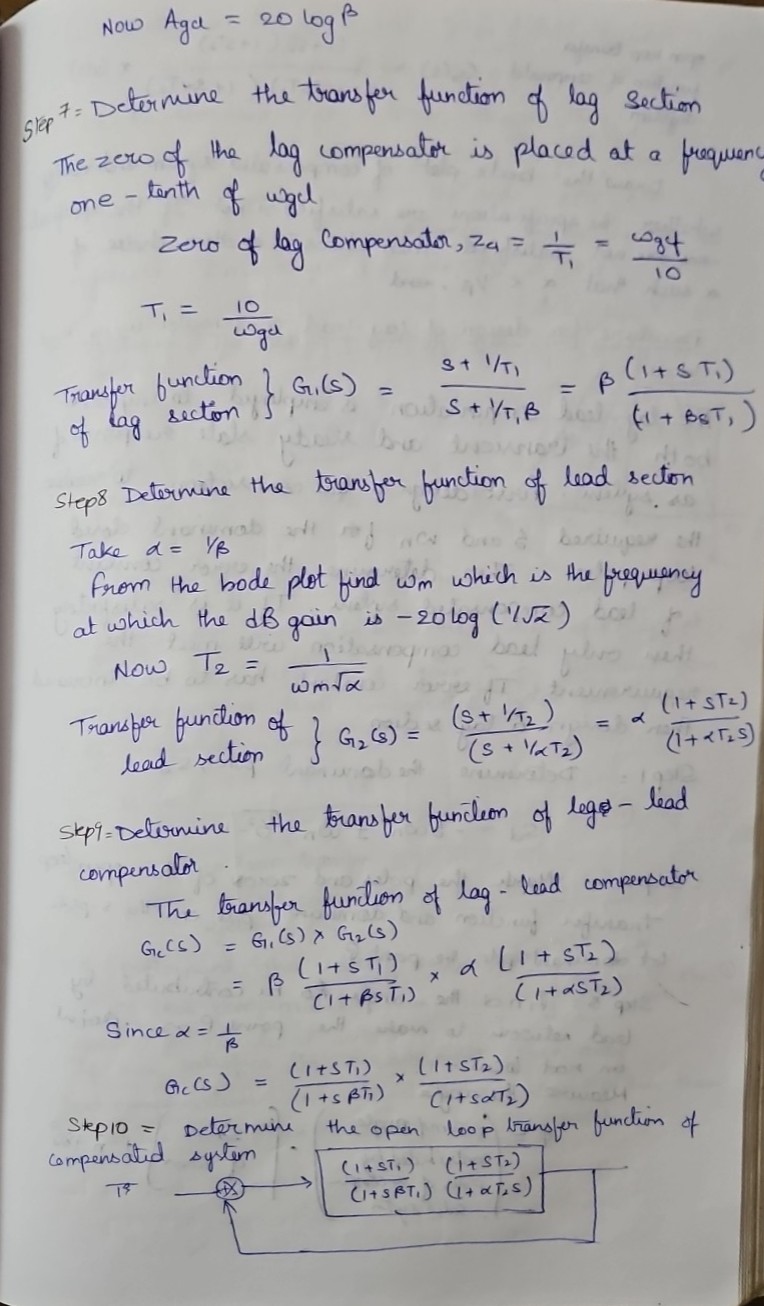 Now Agcl = 20 log β
Step 7 = Determine the transfer function of lag section
The zero of the lag compensator is placed at a frequency
one-tenth of wgcl
Zero of lag Compensator, Z₁ = 1/T₁ = ωgcl/10
T₁ = 10/ωgcl
Transfer function of lag secton } G₁(s) = (s + 1/T₁)/(s + 1/T₁β) = β (1+sT₁)/(1+βsT₁)
Step8 Determine the transfer function of lead secton
Take α = 1/β
from the bode plot find wm which is the frequency
at which the dB gain is -20log (1/√α)
Now T₂ = 1/(ωm√α)
Transfer function of lead section } G₂(s) = (s + 1/T₂)/(s + 1/αT₂) = α (1+sT₂)/(1+αT₂s)
Step9=Determine the transfer function of lag - lead
compensator.
The transfer function of lag-lead compensator
Gc(s) = G₁(s) × G₂(s)
= β (1+sT₁)/(1+βsT₁) × α (1+sT₂)/(1+αsT₂)
Since α = 1/β
Gc(s) = (1+sT₁)/(1+sβT₁) × (1+sT₂)/(1+sαT₂)
Step10 = Determine the open loop transfer function of
compensated system.
(1+sT₁)/(1+sβT₁) (1+sT₂)/(1+αT₂s)